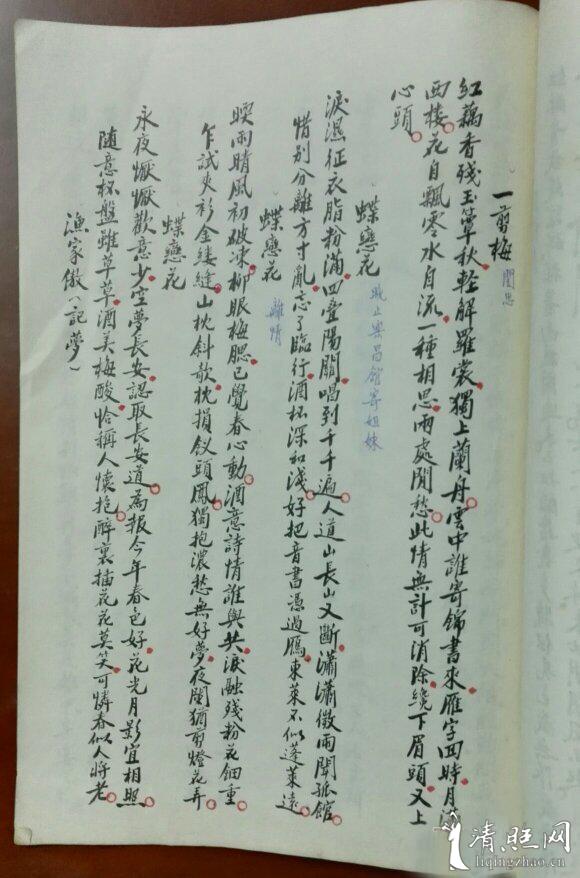 一剪梅 閨思
紅藕香殘玉簟秋輕解羅裳獨上蘭舟雲中誰寄錦書來雁字回時月滿
西樓花自飄零水自流一種相思兩處閒愁此情無計可消除纔下眉頭又上
心頭
蝶戀花 晚止樂昌館寄姐妹
淚濕征衣脂粉滿四疊陽關唱到千千遍人道山長山又斷瀟瀟微雨聞孤館
惜別分離方寸亂忘了臨行酒杯深和淺好把音書憑過雁東萊不似蓬萊遠
蝶戀花 離情
暖雨晴風初破凍柳眼梅腮已覺春心動酒意詩情誰與共淚融殘粉花鈿重
乍試夾衫金縷縫山枕斜欹枕損釵頭鳳獨抱濃愁無好夢夜闌猶剪燈花弄
蝶戀花
永夜懨懨歡意少空夢長安認取長安道為報今年春色好花光月影宜相照
隨意杯盤雖草草酒美梅酸恰稱人懷抱醉裏插花花莫笑可憐春似人將老
漁家傲（記夢）
清照网
liqingzhao.cn